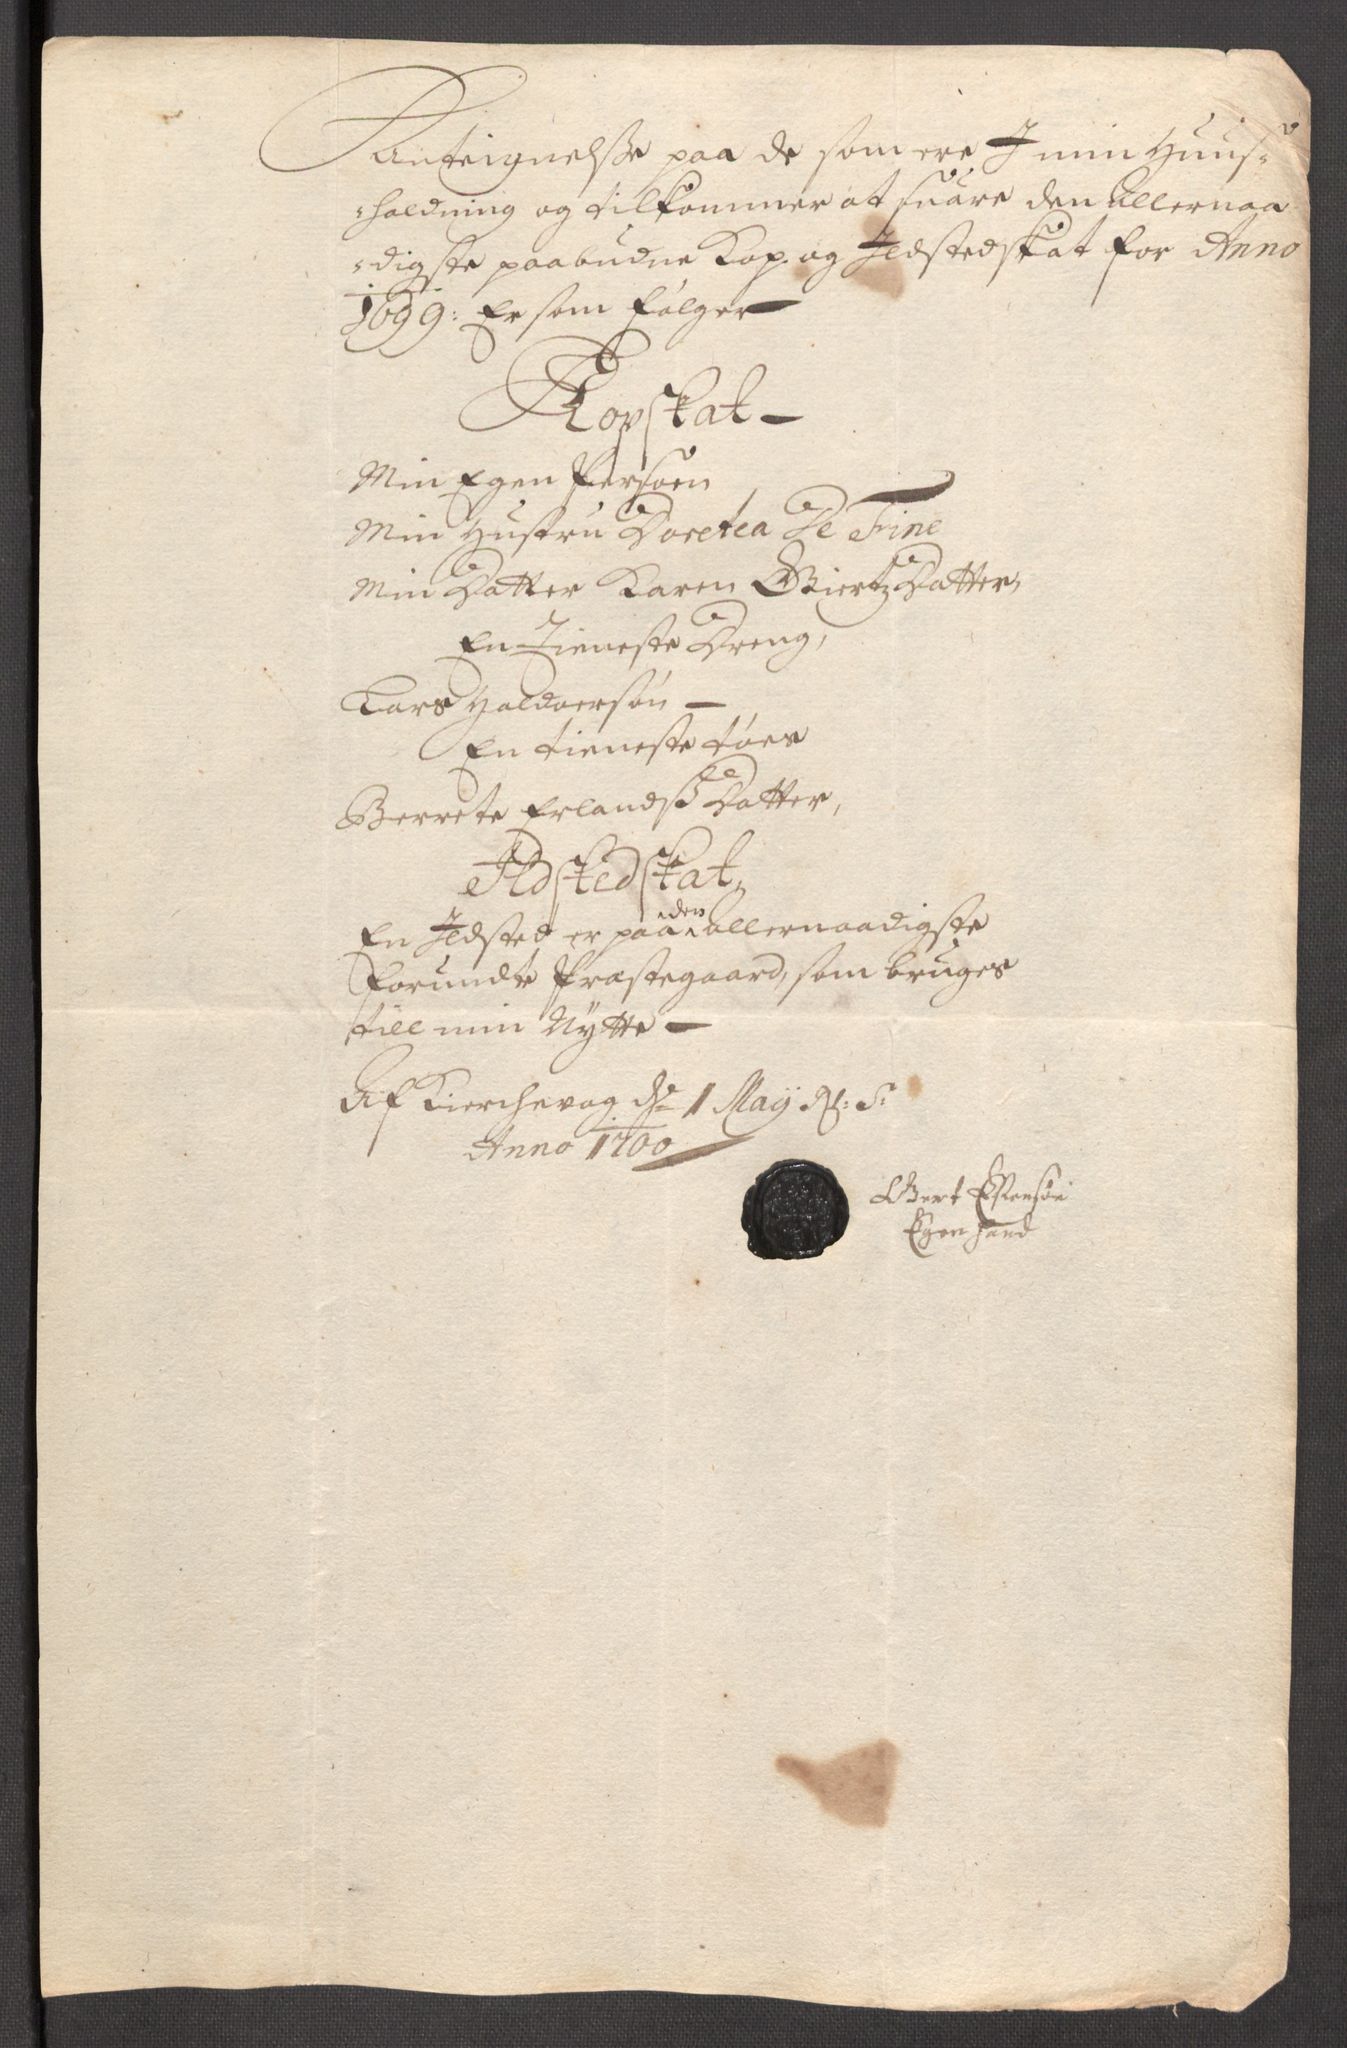 Anteignelsse paa de som ere J min Huus-
-holdning og tilkommer at suare den allernaa
-digste paabudne Kop og Jldstedskat for Anno
1699: Er som følger
Kopskat
Min Egen Persoen
Min Hustru Doretea De Fine
Min Datter Karen Giertz Datter,
En Tieneste Dreng,
Lars Haldversøn
En tieneste tøes
Berrete Erlandsß Datter,
Jldstedskat,
En Jldsted er paa den allernaadigste
forundte Præstegaard, som bruges
till min Nÿtte
Af Kierchevog d. 1 Maÿ N: S:
Anno 1700
Giert
Egen Hand